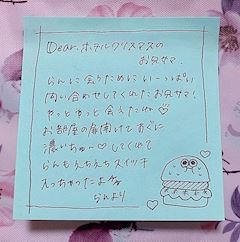 Dear. ホテルクリスマスの
お兄サマ.
らんに会うためにいーっぱい
問い合わせしてくれたお兄サマ!
やっとやっと会えたね♡
お部屋の扉開けてすぐに
濃いちゅ〜♡してくれて
らんもえちえちスイッチ
入っちゃったよ
らんより